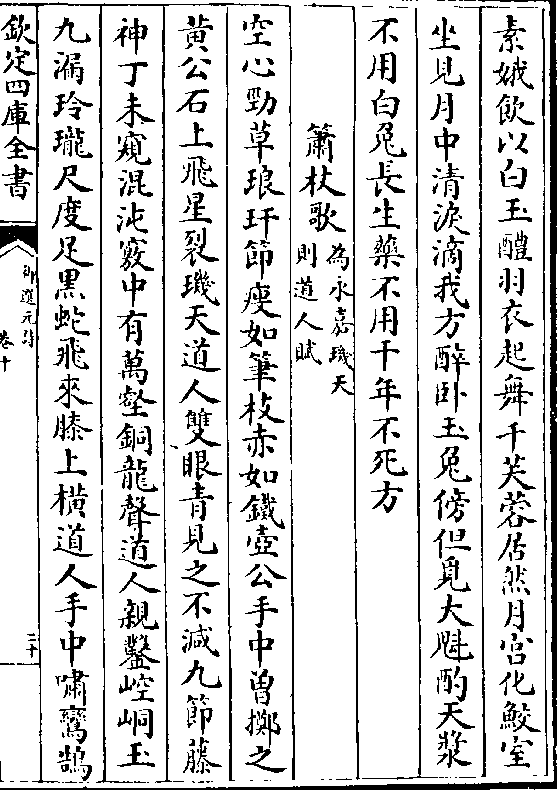 素娥飲以白玉醴羽衣起舞千芙蓉居然月宫化鮫室
坐見月中清淚滴我方醉卧玉兔傍但覓大魁酌天漿
不用白兔長生藥不用千年不死方
簫杖歌為永嘉璣天
則道人賦
空心勁草琅玕節瘦如筆枝赤如鐵壺公手中曽擲之
黄公石上飛星裂璣天道人雙眼青見之不減九節藤
神丁未窺混沌竅中有萬壑銅龍聲道人親鑿崆峒玉
九漏玲瓏尺度足黒蛇飛來膝上横道人手中嘯鸞鵠
欽定四庫全書
御選元詩
卷十
三十